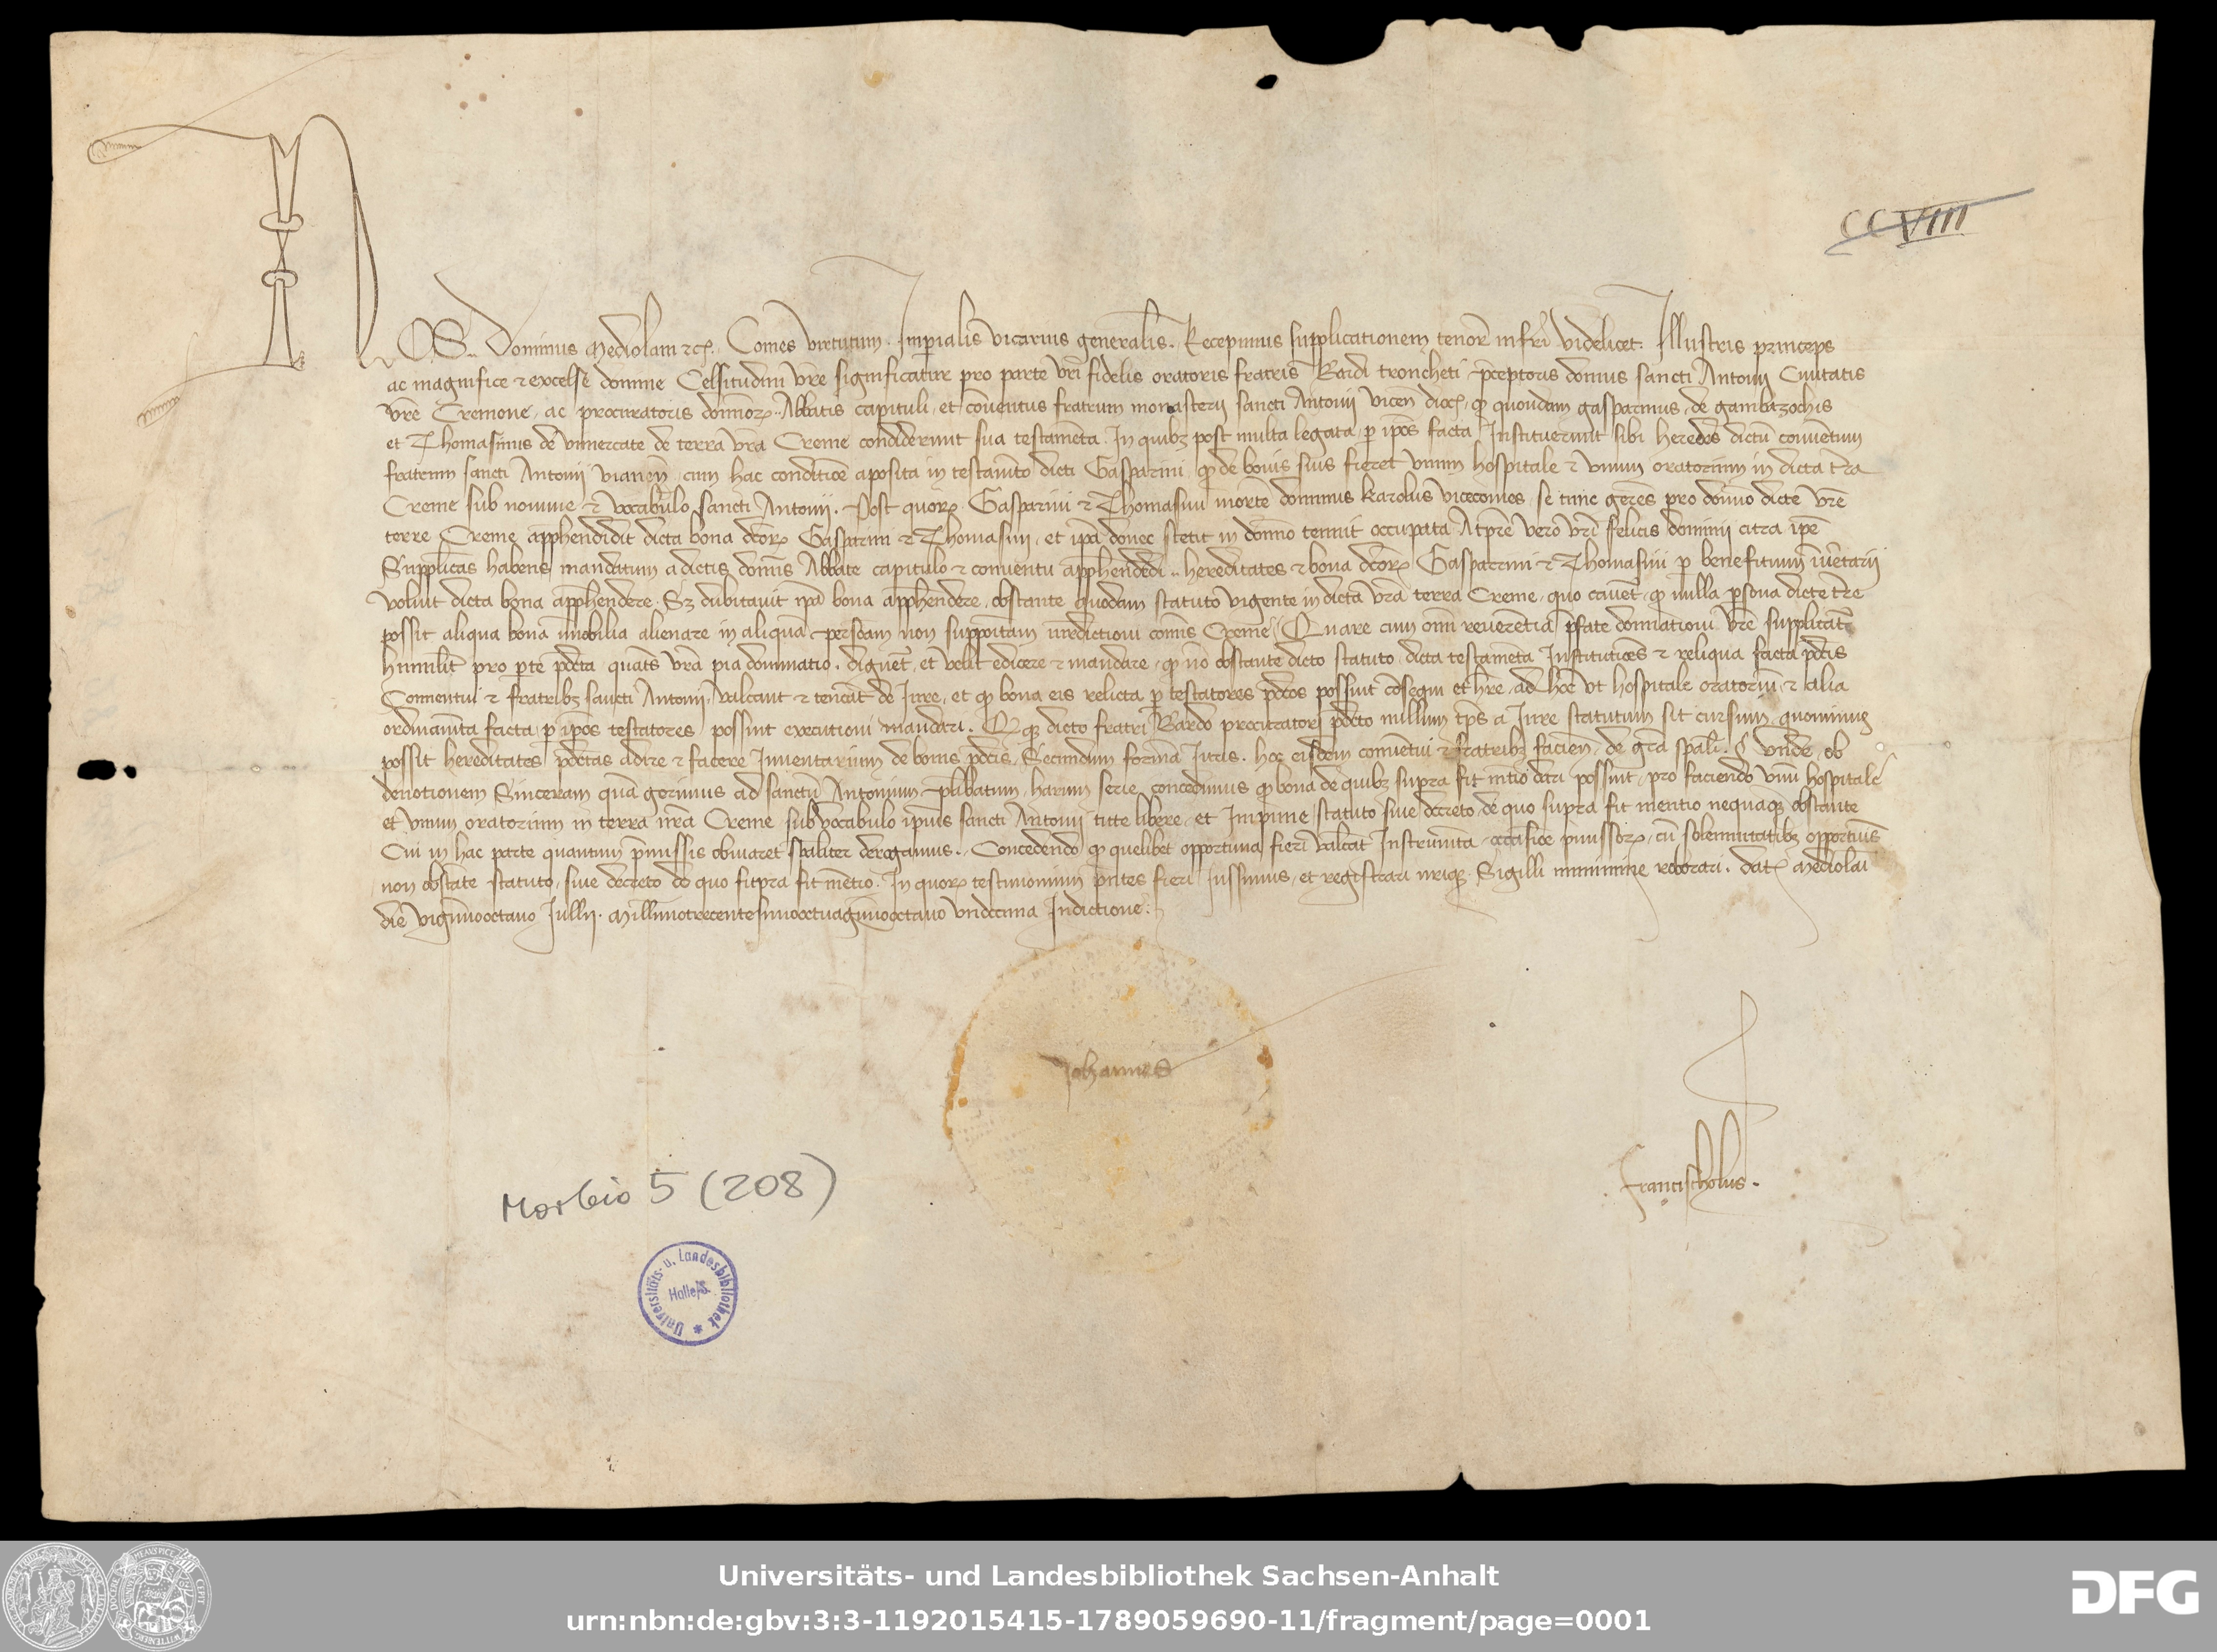 CCVIII
NOS.. Dominus Mediolani ⁊cꝫ. Comes virtutum. Imperialis vicarius generalis. Recepimus supplicationem tenorē infrī videlicet. Illustris princeps
ac magnifice ⁊ excelse domine Celsitudini vrē significatur pro parte vrī fidelis oratoris fratris Bardi troncheti pceptoris domus sancti Antonij Ciuitatis
vrē Cremone, ac procuratoris dominoꝝ.. Abbatis capituli, et conuentus fratrum monasterij sancti Antonij vieneñ dioc̄, ꝙ quondam gasparinus, de gambazochis
et Thomasinus de vimercate de terra vrā Creme condiderunt sua testamēta. In quibꝫ post multa legata, ꝑ ip̄os facta Instituerunt sibi heredes dictū conuentum
fratrum sancti Antonij vianeñ cum hac conditiōe aposita in testam̄to dicti Gasparini, ꝙ de bonis suis fieret vnum hospitale ⁊ vnum oratorium in dicta trā
Creme sub nomine ⁊ vocabulo sancti Antonij. Post quoꝝ Gasparini ⁊ Thomasini mortē dominus karolus vicecomes, se tunc gerēs pro domino dicte vrē
terre Creme apphendidit dicta bona dcōꝝ Gasparini ⁊ Thomasini, et ip̄a donec stetit in dominio tenuit occupata A tp̄re vero vrī felicis dominij citra ip̄e
Supplicās habens mandatum a dictis dominis Abbate capitulo ⁊ conuentu apphendēdi.. hereditates ⁊ bona dcōꝝ Gasparini ⁊ Thomasini ꝑ benefitium īuētarij
voluit dicta bona apphendere. Sꝫ dubitauit ip̄a bona apphendere, obstante quodam statuto vigente in dicta vrā terra Creme, quo cauet᷑, ꝙ nulla ꝑsona dicte trē
possit aliqua bona īmobilia alienare in aliquā personam non suppositam iurisdictioni comunis Creme. Quare cum omni reuerentia pfate dominationi vrē supplicat᷑
humilit᷑ pro ꝑte pdcta quatīs vrā pia dominatio, dignet᷑, et velit edicere ⁊ mandare, ꝙ nō obstante dicto statuto, dicta testamēta Institutiōes ⁊ reliqua facta pdctis
Conuentui ⁊ fratribꝫ sancti Antonij, valeant ⁊ teneāt de Iure, et ꝙ bona eis relicta ꝑ testatores pdctos possint cōsequi et hr̄e, ad hoc vt hospitale oratoriū, ⁊ alia
ordinam̄ta facta, ꝑ ip̄os testatores possint executioni mandari. Et ꝙ dicto fratri Bardo procuratori pdcto nullum tp̄s a Iure statutum sit cursum, quominus
possit hereditates pdctas adire ⁊ facere Inuentarium de bonis pdctis. Secundum formā Iuris. hoc eisdem conuētui ⁊ fratribꝫ facieñ, de grā spālī. Vnde, ob
deuotionem Sinceram quā gerimus ad sanctū Antonium prelibatum, harum serie concedimus ꝙ bona de quibꝫ supra fit mētio dari possint, pro faciendo vnū hospitale
et vnum oratorium in terra nrā Creme sub vocabulo ip̄ius sancti Antonij tute libere, et Impune, statuto siue decreto de quo supra fit mentio nequaqꝫ obstante
Cui in hac parte quantum pmissis obuiaret spāliter derogamus. Concedendo ꝙ quelibet opportuna fieri valeāt Instrum̄ta occasiōe pmissoꝝ, cū solemnitatibꝫ opportunis
non obstāte statuto, siue decreto de quo supra fit mētio. In quoꝝ testimonium pñtes fieri Iussimus, et registrari nrīqꝫ Sigilli munimine roborari. Dat̄ Mediolani
die vigesimooctauo Iullij. Millesimotrecentesimooctuagesimooctauo vndecima Indictione.
Johannes
Francischolus.
Morbio 5 (208)
Universitäts- u. Landesbibliothek Halle/S.
Universitäts- und Landesbibliothek Sachsen-Anhalt
urn:nbn:de:gbv:3:3-1192015415-1789059690-11/fragment/page=0001
DFG